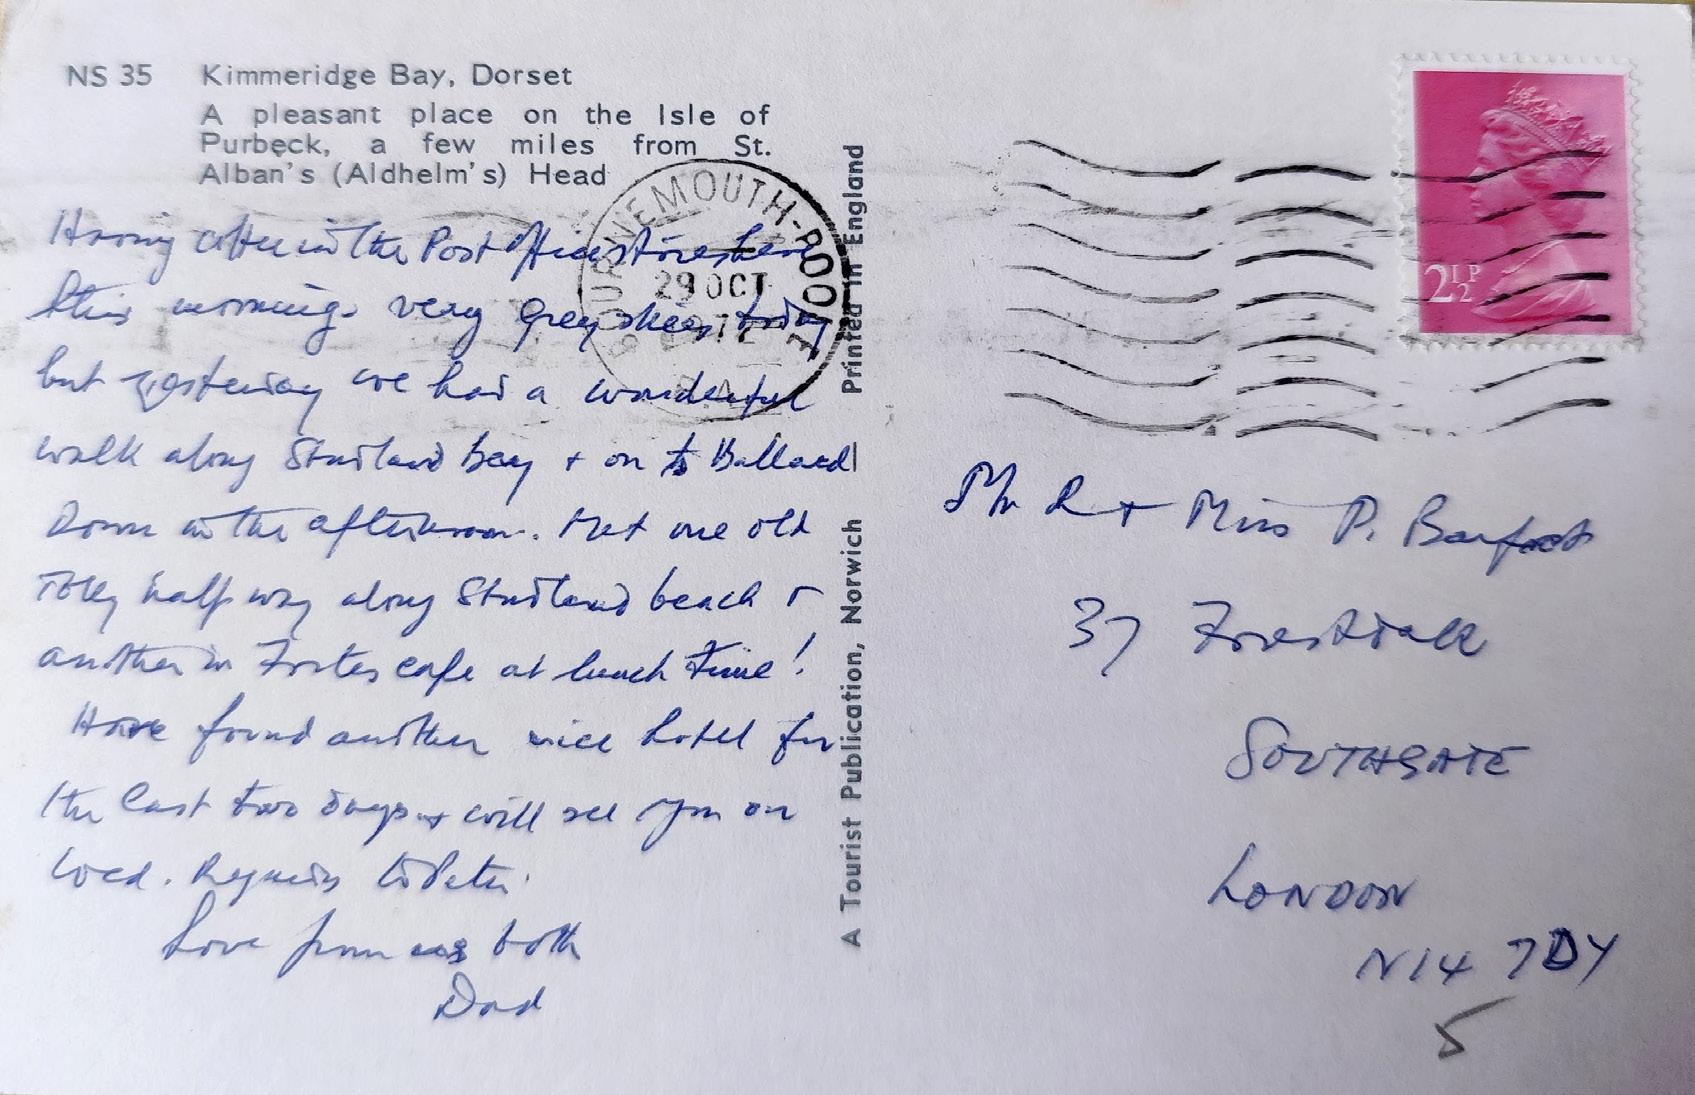 NS 35 Kimmeridge Bay, Dorset
A pleasant place on the Isle of
Purbeck, a few miles from St.
Alban's (Aldhelm's) Head
Having coffee in the Post Office Stores here
this morning. very grey skies today
but yesterday we had a wonderful
walk along Studland bay + on to Ballard
Down in the afternoon. Met one old
half way along Studland beach +
another in Fortes cafe at lunch time!
Have found another nice hotel for
the last two days + will see you on
Wed. Regards to Peter.
Love from us both
Dad
BOURNEMOUTH-POOLE
29 OCT
1972
A Tourist Publication, Norwich Printed in England
2½P
Mr R + Miss P. Barfoot
37 Forestdale
SOUTHGATE
LONDON
N14 7DY
5